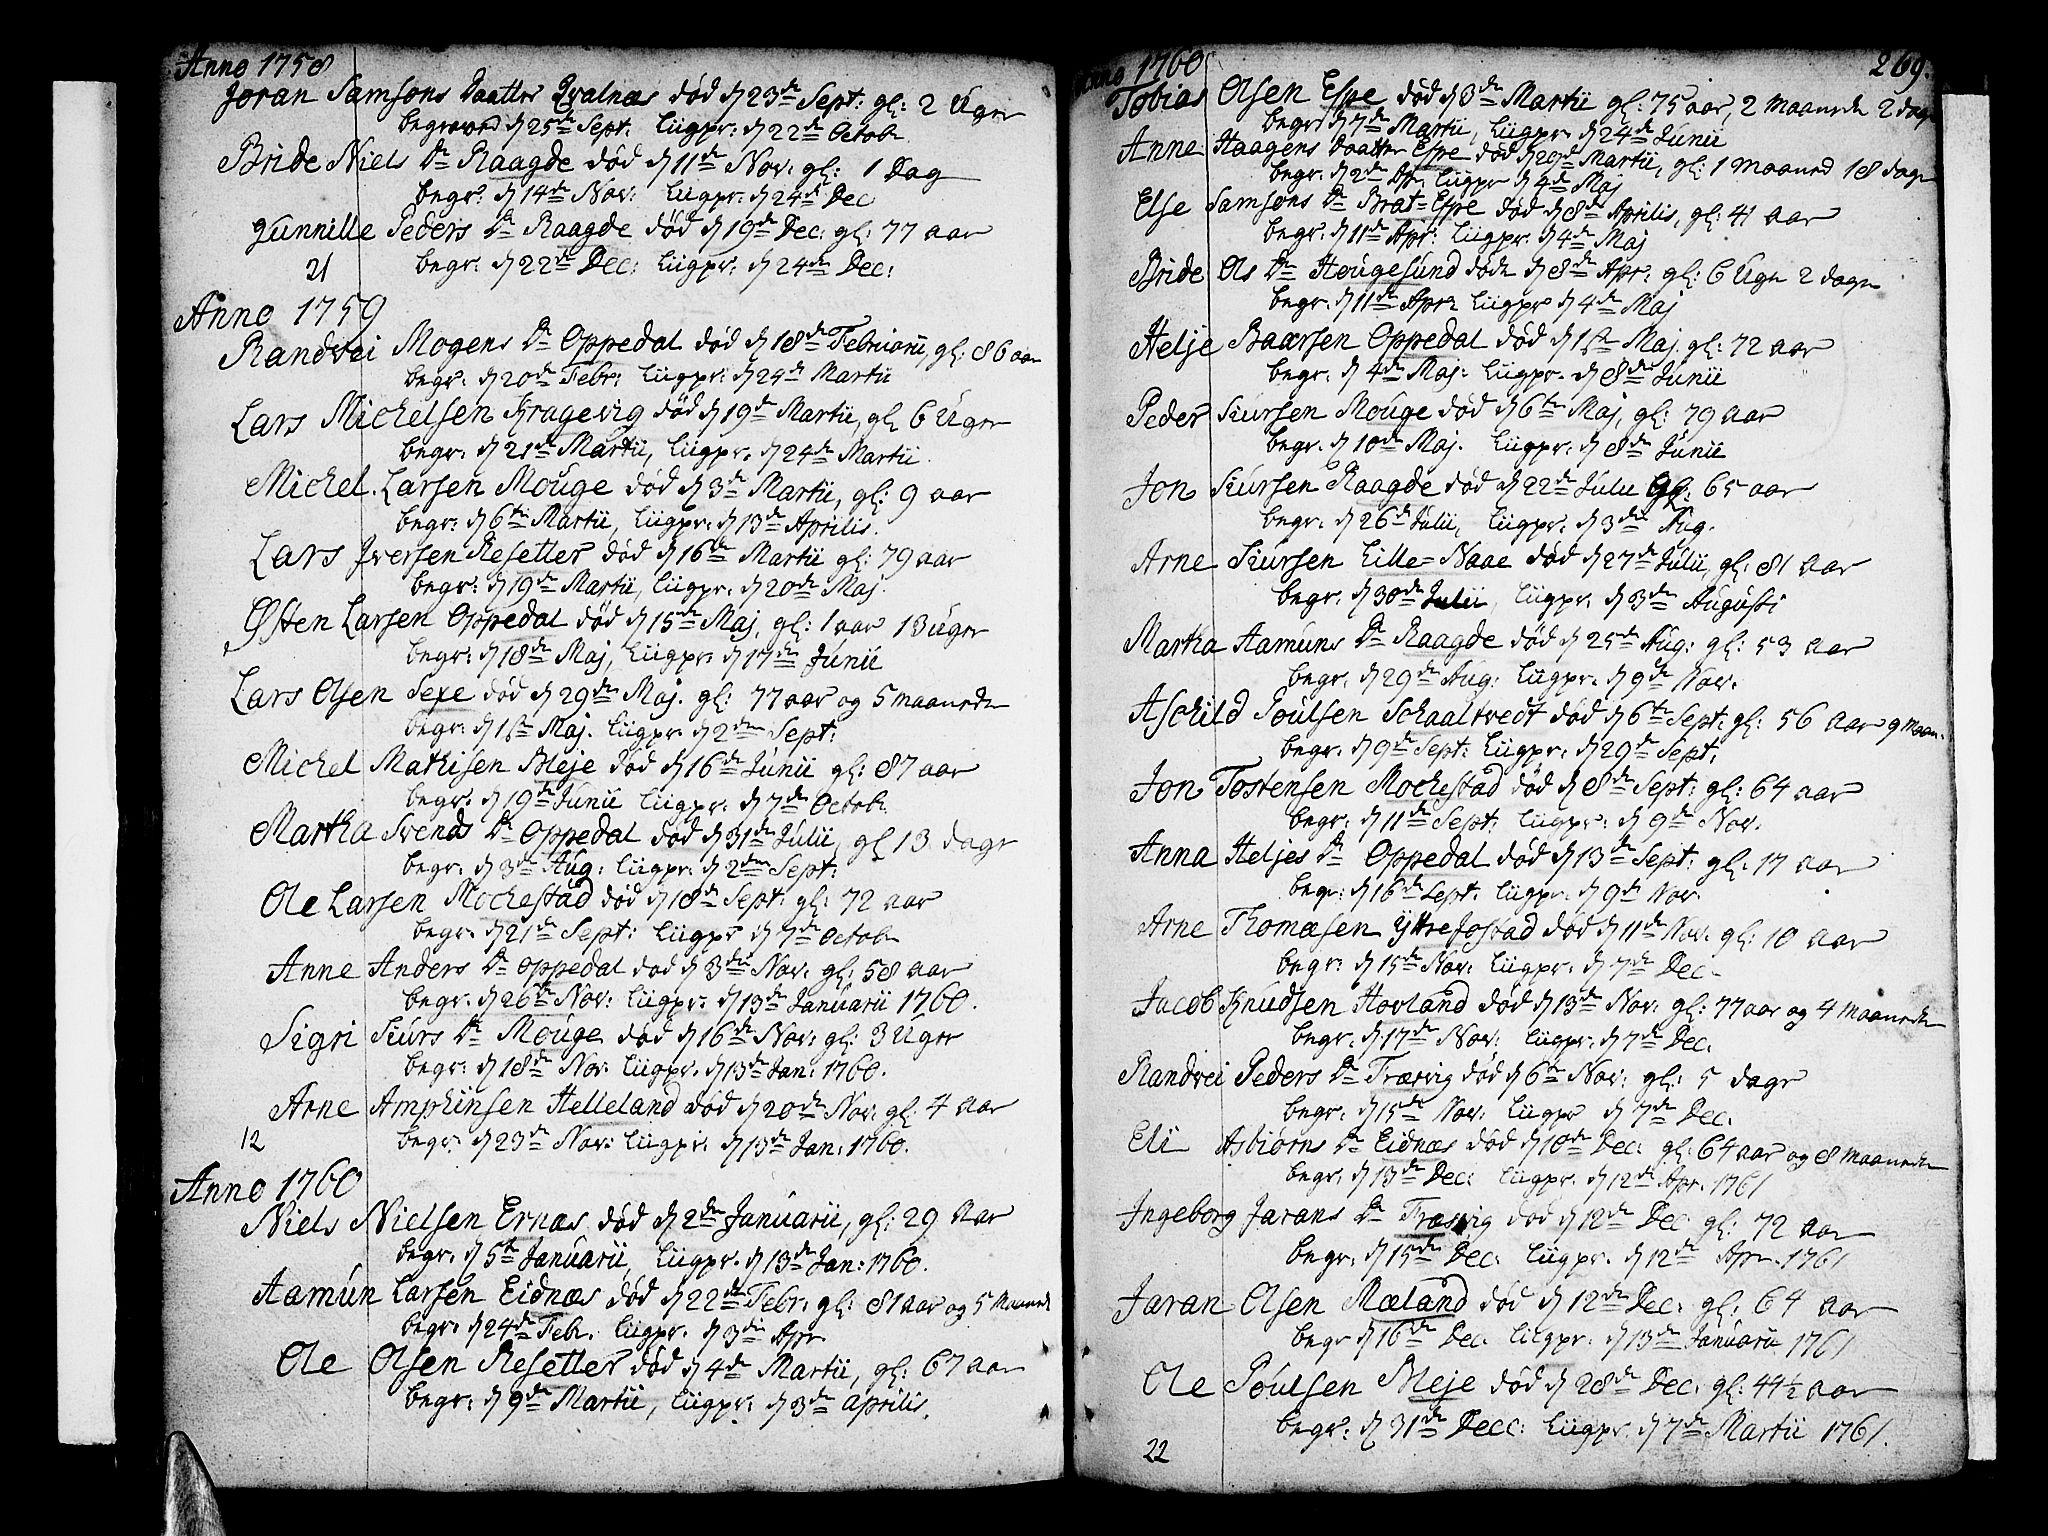 Anno 1758
Joran Samsons Daatter Qvalnæs død d 23de Sept: gl: 2 Uger
begraved d 25de Sept. Liigpr: d 22de Octob
Bride Niels Dr Raagde død d 11de Nov: gl: 1 Dag
begr: d 14de Nov: Liigpr: d 24de Dec
Gunnille Peders Dr Raagde død d 19de Dec: gl: 77 aar
21 begr: d 22de Dec: Liigpr: d 24de Dec:
Anno 1759
Randvei Mogens Dr Oppedal død d 18de Februarii, gl: 86 aar
begr: d 20de Febr: Liigpr: d 24de Martii
Lars Michelsen Kragevig død d 19de Martii, gl 6 Uger
begr: d 21de Martii, Liigpr. d 24de Martii.
Michel Larsen Mouge død d 3de Martii, gl: 9 aar
begr: d 6te Martii, Liigpr: d 13de Aprilis.
Lars Iversen Resetter død d 16de Martii gl: 79 aar
begr: d 19de Martii, Liigpr. d 20de Maj.
Østen Larsen Oppedal død d 15de Maj, gl: 1 aar 13 uger
begr: d 18de Maj, Liigpr: d 17de Junii
Lars Olsen Sexe død d 29de Maj. gl: 77 aar og 5 maaneder
begr: d 1ste Maj. Liigpr: d 2den Sept:
Michel Mathisen Bleje død d 16de Junii gl: 87 aar
begr: d 19de Junii Liigpr: d 7de Octob
Martha Svends Dr Oppedal død d 31de Julii, gl 13 dage
begr: d 3de Aug: Liigpr: d 2den Sept:
Ole Larsen Mochestad død d 18de Sept: gl: 72 aar
begr: d 21de Sept: Liigpr d 7de Octob
Anne Anders Dr Oppedal død d 3die Nov: gl: 58 aar
begr. d 26te Nov: Liigpr: d 13de Januarii 1760.
Sigri Siurs Dr Mouge død d 16de Nov: gl: 3 Uger
begr: d 18de Nov: Liigpr. d 13de Jan: 1760.
Arne Amphinsen Helleland død d 20de Nov: gl: 4 aar
12 begr: d 23de Nov: Liigpr: d 13de Jan: 1760.
Anno 1760
Niels Nielsen Ernæs død d 2den Januarii, gl: 29 aar
begr. d 5te Januarii, Liigpr. d 13de Jan: 1760.
Aamún Larsen Eidnæs død d 22de Febr: gl: 81 aar og 5 Maaned
begr: d 24de Febr. Liigpr. d 3die Apr.
Ole Olsen Resetter død d 4de Martii, gl: 67 aar
begr: d 9de Martii, Liigpr: d 3de aprilis.
Anno 1760 269.
Tobias Olsen Espe død d 3de Martii gl: 75 aar, 2 maaneder 2 dage
begr: d 7de Martii, Liigpr. d 24de Junii
Anne Haagens Daatter Espe død d 29de Martii, gl: 1 maaned 18 dage
begr. d 2de Apr. Liigpr d 4de Maj
Else Samsons Dr Brat=Espe død d 8de Aprilis, gl: 41 aar
begr. d 11de Apr: Liigpr. d 4de Maj
Bride Ols Dr Hougesund døde d 8de Apr: gl: 6 Uger 2 dage
begr: d 11de Apr: Liigpr d 4de Maj
Helje Baarsen Oppedal død d 1ste Maj. gl: 72 aar
begr: d 4de Maj: Liigpr. d 8de Junii
Peder Siursen Mouge død d 6te Maj, gl: 79 aar
begr. d 10de Maj. Liigpr. d 8de Junii
Jon Siursen Raagde død d 22de Julii gl: 65 aar
begr: d 26de Julii, Liigpr: d 3die Aug.
Arne Siursen Lille=Naae død d 27de Julii, gl: 81 aar
begr. d 30de Julii, Liigpr. d 3de Augusti
Martha Aamuns Dr Raagde død d 25de Aug: gl: 53 aar
begr. d 29de Aug: Liigpr. d 9de Nov.
Aschild Poulsen Schaaltvedt død d 6te Sept: gl: 56 aar 9 maan:
begr: d 9de Sept: Liigpr: d 29de Sept.
Jon Tostensen Mochestad død d 8de Sept: gl: 64 aar
begr: d 11de Sept: Liigpr: d 9de Nov.
Anna Heljes Dr Oppedal død d 13de Sept: gl: 17 aar
begr: d 16de Sept: Liigpr: d 9de Nov.
Arne Thomæsen Yttrejostad død d 11de Nov: gl: 10 aar
begr: d 15de Nov: Liigpr. d 7de Dec.
Jacob Knudsen Hovland død d 13de Nov: gl: 77 aar og 4 maaneder
begr: d 17de Nov: Liigpr: d 7de Dec.
Randvei Peders Dr Træsvig død d 6te Nov: gl: 5 dage
begr: d 15de Nov: Liigpr d 7de Dec.
Eli Asbiørns Dr Eidnæs død d 10de Dec: gl: 64 aar og 8 maaneder
begr: d 13de Dec: Liigpr. d 12de Apr. 1761
Ingeborg Jarans Dr Træsvig død d 12de Dec: gl: 72 aar
begr: d 15de Dec: Liigpr: d 12de Apr. 1761
Jaran Olsen Mæland død d 12de Dec: gl: 64 aar
begr d 16de Dec. Liigpr: d 13de Januarii 1761
Ole Poulsen Bleje død d 28de Dec: gl: 44½ aar
begr: d 31de Dec: Liigpr. d 7de Martii 1761.
22